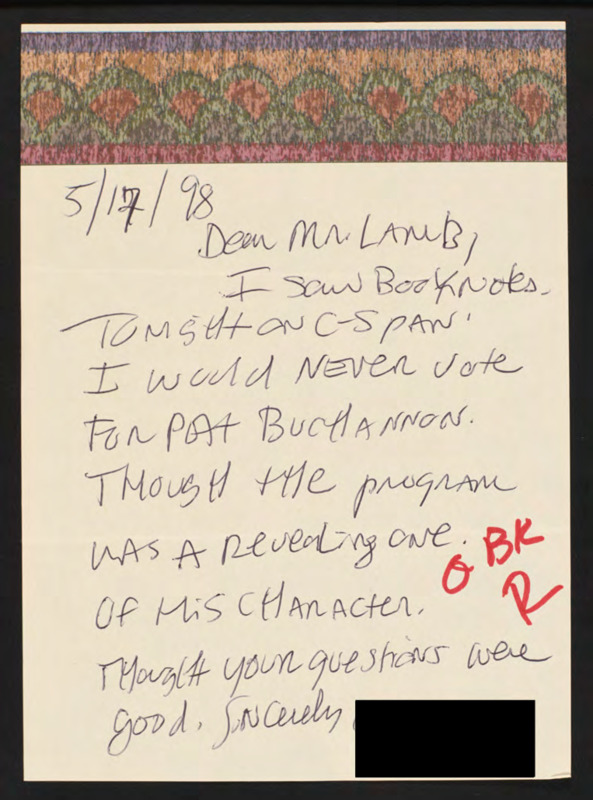 5/17/98
Dear Mr. LAMB,
I saw BookNotes
TONIGHT ON C-SPAN.
I would NEVER vote
FOR PAT BUCHANNON.
THOUGH tHe program
WAS A Revealing one.
OF HIS CHARACTER.
O BK
R
THOUGHt your questions were
good. Sincerely